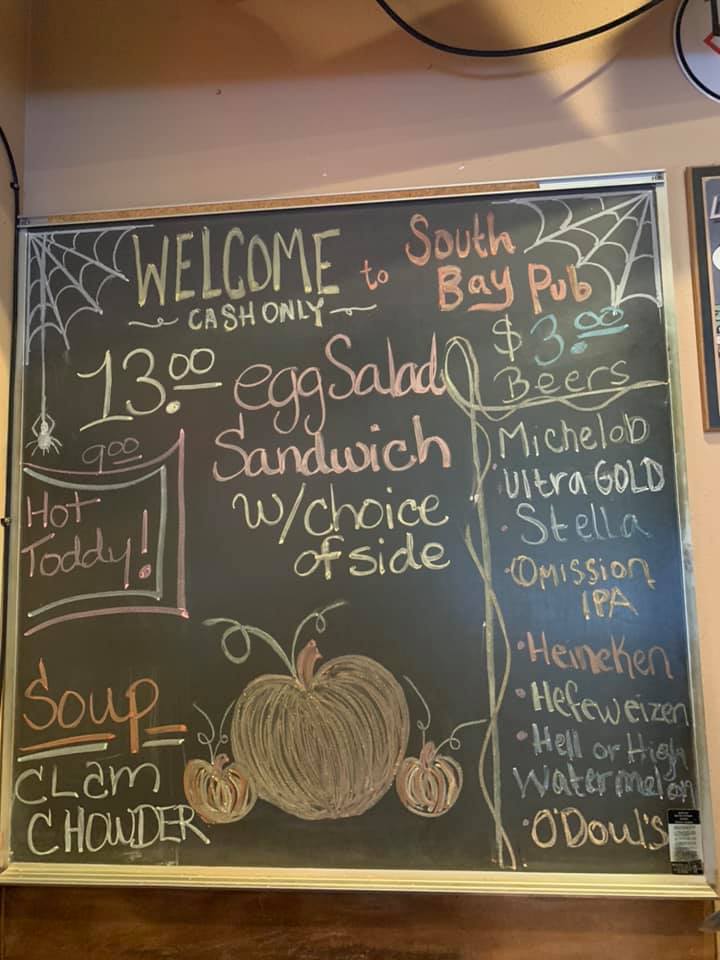 WELCOME to South
Bay Pub
~ CASH ONLY ~
13.00 egg Salad
Sandwich
w/choice
of side
9.00
Hot
Toddy!
Soup
CLAM
CHOWDER
$3.00
Beers
Michelob
Ultra GOLD
· Stella
· Omission
IPA
· Heineken
· Hefeweizen
· Hell or High
Watermelon
· O'Doul's